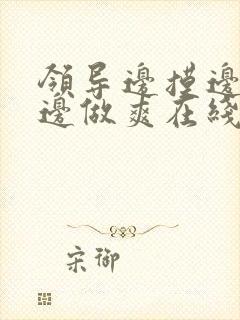 領导邊摸邊
邊做爽在綫
宋御